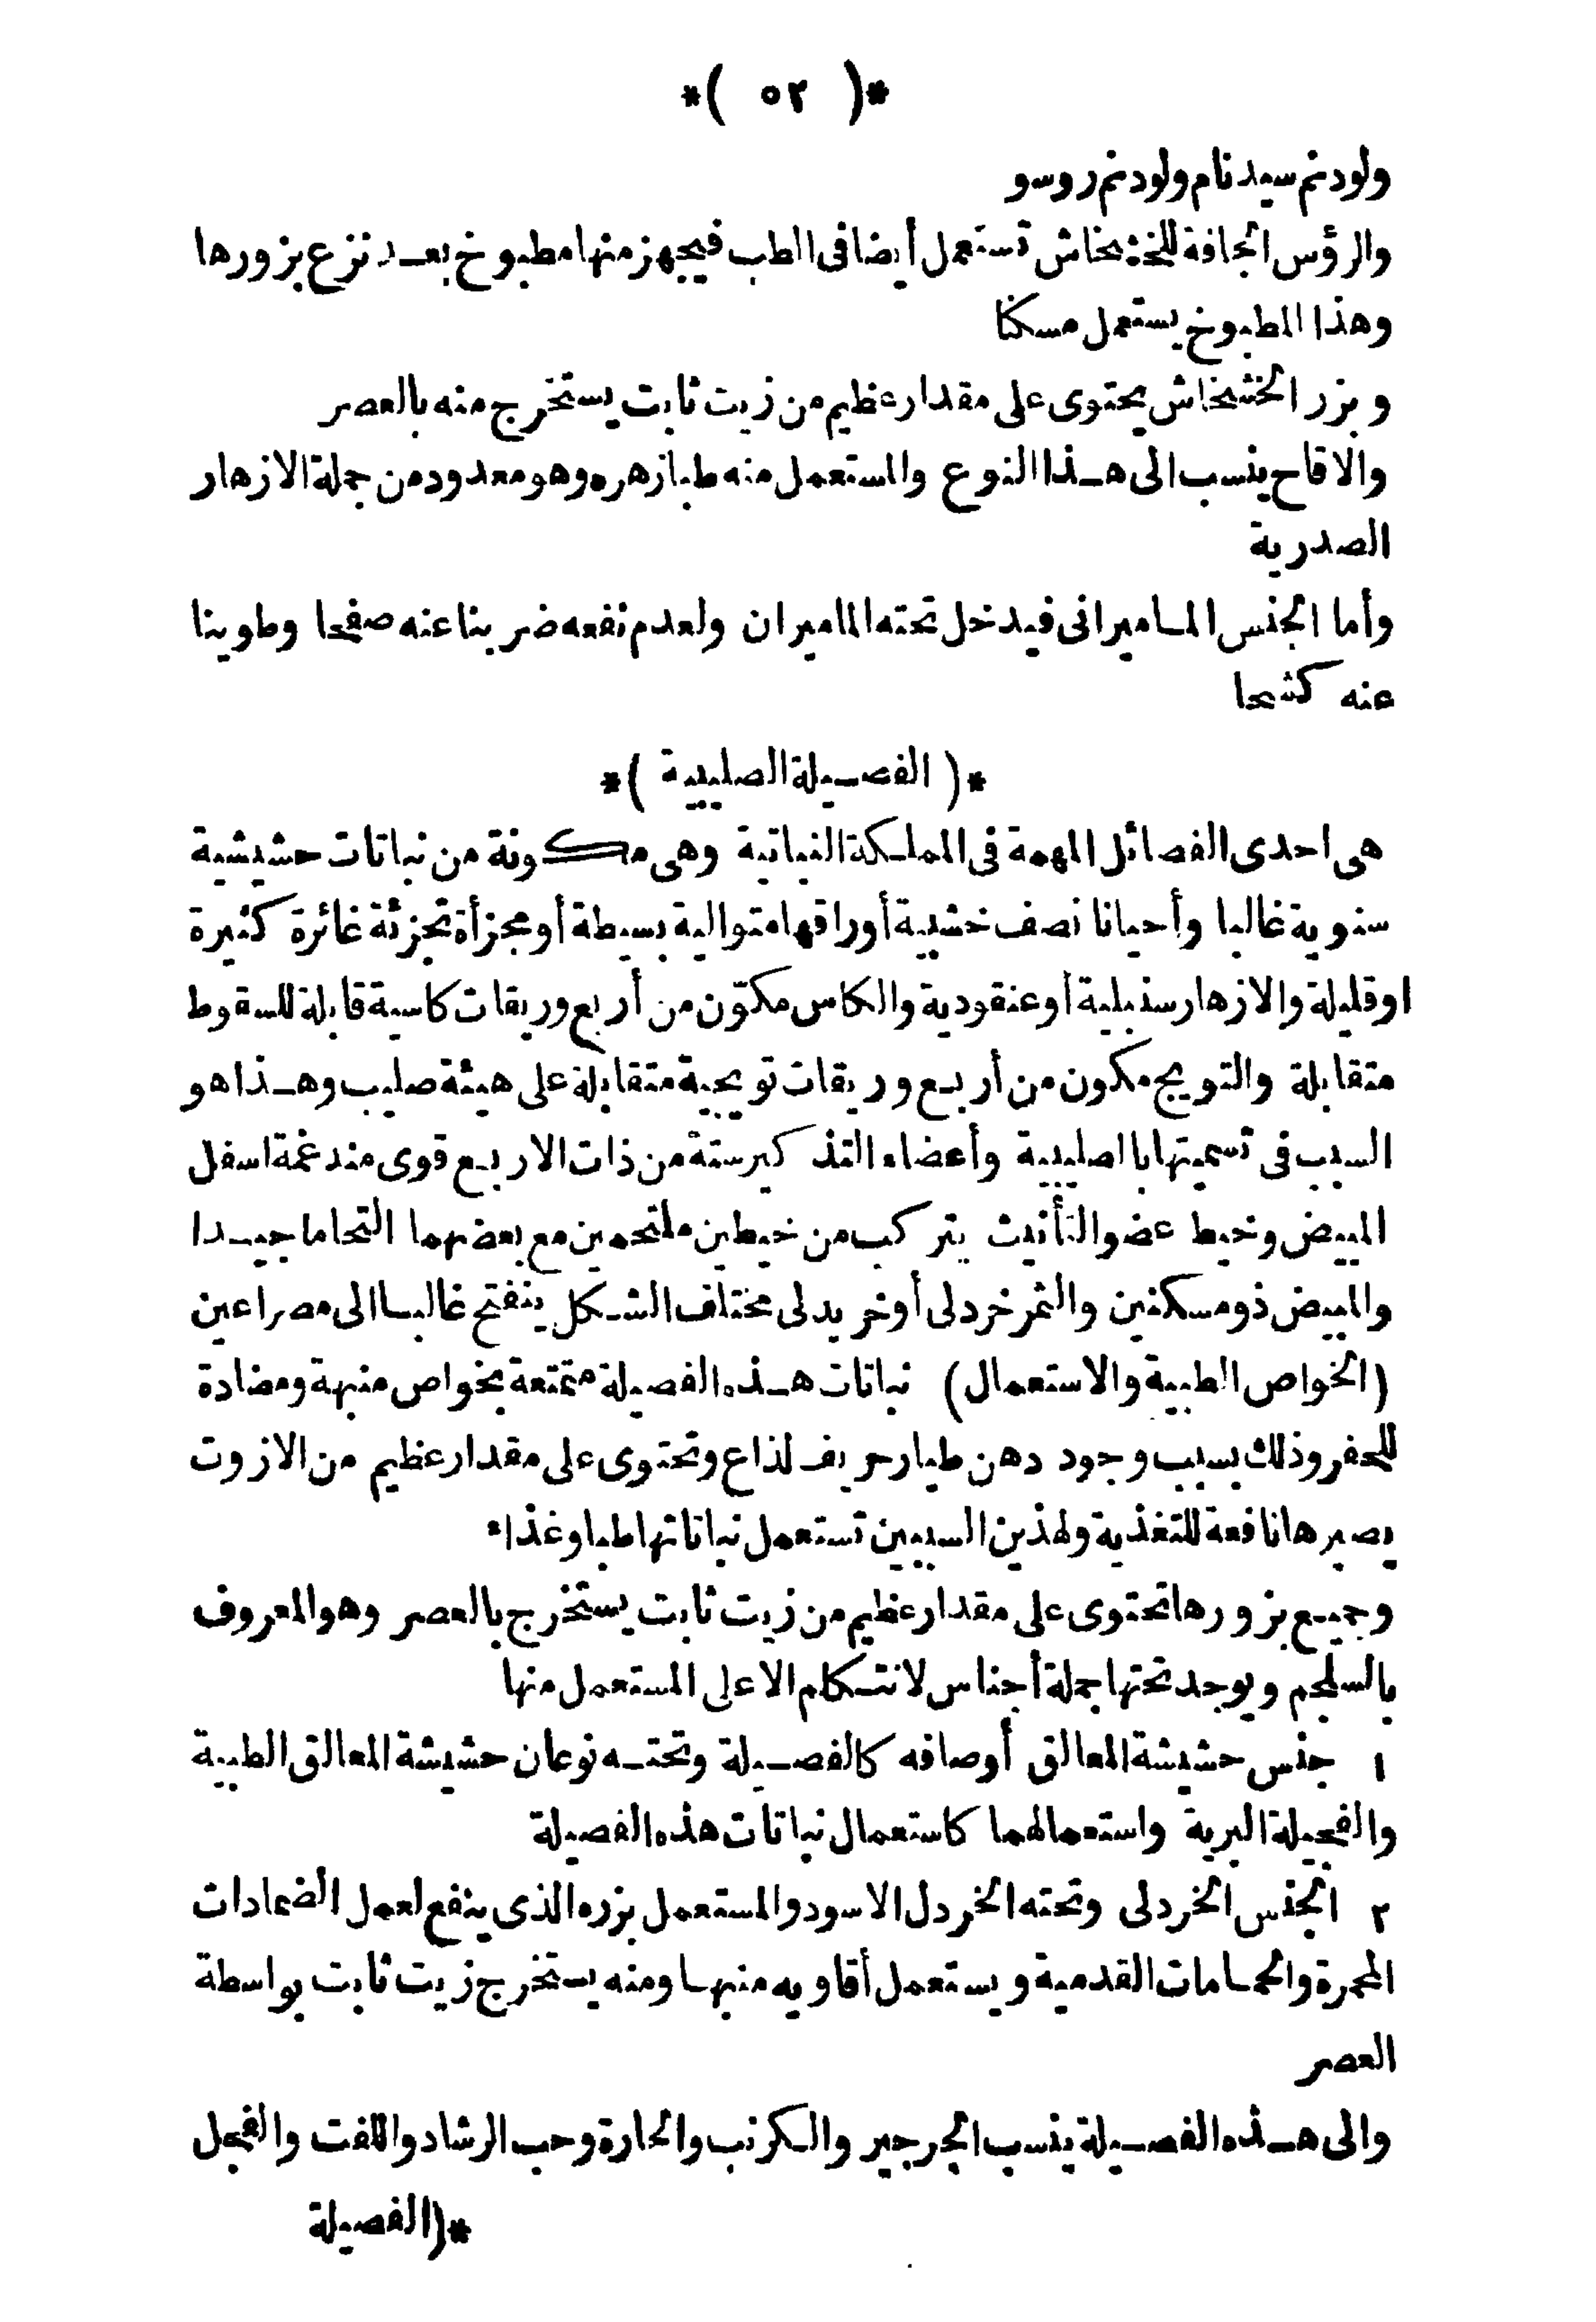 *( ٥٢ )*
ولودنم سيدنام ولودنم روسو
والرؤس الجافة للخشخاش تستعمل أيضا فى الطب فيجهز منها مطبوخ بعد نزع بزورها
وهذا المطبوخ يستعمل مسكنا
وبزر الخشخاش يحتوى على مقدار عظيم من زيت ثابت يستخرج منه بالعصر
والاقاح ينسب الى هذا النوع والمستعمل منه طبا زهره وهو معدود من جملة الازهار
الصدرية
وأما الجنس الماميرانى فيدخل تحته الماميران ولعدم نفعه ضربنا عنه صفحا وطوينا
عنه كشحا
*( الفصيلة الصليبية )*
هى احدى الفصائل المهمة فى المملكة النباتية وهى مكونة من نباتات حشيشية
سنوية غالبا وأحيانا نصف خشبية أوراقها متوالية بسيطة أو مجزأة تجزئة غائرة كثيرة
او قليلة والازهار سنبلية أو عنقودية والكاس مكوّن من أربع وريقات كاسية قابلة للسقوط
متقابلة والتويج مكون من أربع وريقات تويجية متقابلة على هيئة صليب وهذا هو
السبب فى تسميتها بالصليبية وأعضاء التذكير ستة من ذات الاربع قوى مندغمة اسفل
المبيض وخيط عضو التأنيث يتركب من خيطين ملتحمين مع بعضهما التحاما جيدا
والمبيض ذو مسكنين والثمر خردلى أو خريدلى مختلف الشكل ينفتح غالبا الى مصراعين
(الخواص الطبية والاستعمال) نباتات هذه الفصيلة متمتعة بخواص منبهة ومضادة
للحفر وذلك بسبب وجود دهن طيار حريف لذاع وتحتوى على مقدار عظيم من الازوت
يصيرها نافعة للتغذية ولهذين السببين تستعمل نباتاتها طبا وغذاء
وجميع بزورها تحتوى على مقدار عظيم من زيت ثابت يستخرج بالعصر وهو المعروف
بالسلجم ويوجد تحتها جملة أجناس لا نتكلم الا على المستعمل منها
١ جنس حشيشة المعالق أوصافه كالفصيلة وتحته نوعان حشيشة المعالق الطبية
والفجيلة البرية واستعمالهما كاستعمال نباتات هذه الفصيلة
٢ الجنس الخردلى وتحته الخردل الاسود والمستعمل بزره الذى ينفع لعمل الضمادات
المحمرة والحمامات القدمية ويستعمل أفاويه منبها ومنه يستخرج زيت ثابت بواسطة
العصر
والى هذه الفصيلة ينسب الجرجير والكرنب والحارة وحب الرشاد واللفت والفجل
*(الفصيلة